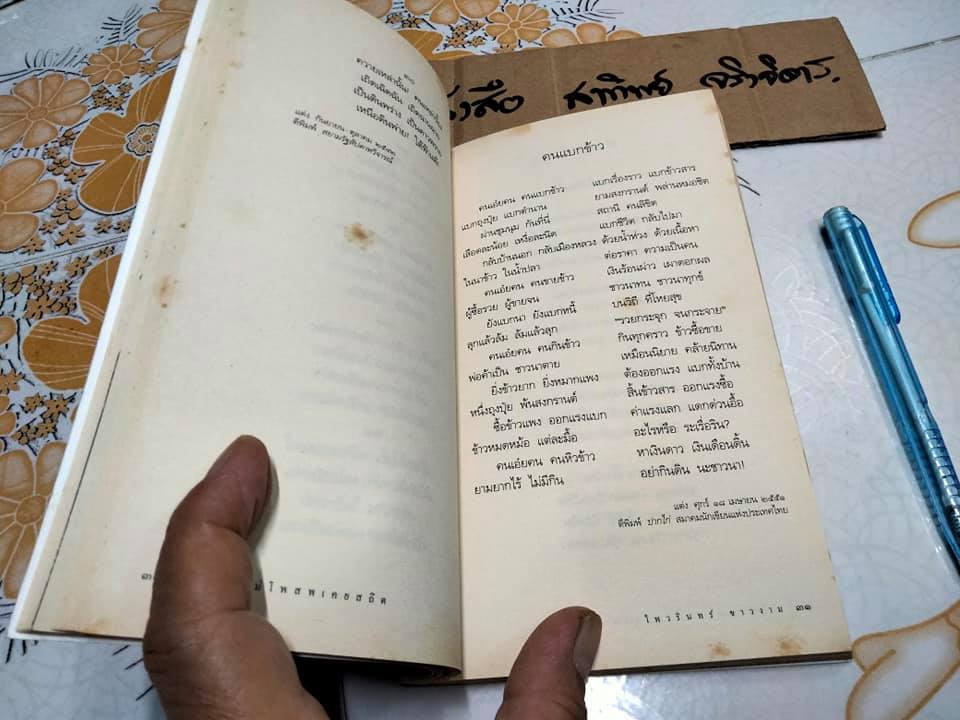 ๓๐
ควายเหล่านั้น! คนเหล่านั้น
เถิดเนิดนั้น เถิดนานช้า
เป็นดินพร่าง เป็นดาวพราว
เหนือดินพ่าย! ใต้ฟ้าแพ้
แต่ง กันยายน-ตุลาคม ๒๕๓๓
ตีพิมพ์ สยามรัฐสัปดาหวิจารณ์
โพสพเคยสถิต
สาทิพย์
คนแบกข้าว
คนเอ๋ยคน คนแบกข้าว แบกเรื่องราว แบกข้าวสาร
แบกถุงปุ๋ย แบกตำนาน ยามสงกรานต์ พล่านหมอชิต
ผ่านชุมนุม กันที่นี่ สถานี คนลิขิต
เลือดละน้อย เหงื่อละนิด แบกชีวิต กลับไปมา
กลับบ้านนอก กลับเมืองหลวง ด้วยน้ำห่วง ด้วยเนื้อหา
ในนาข้าว ในน้ำปลา ต่อราคา ความเป็นคน
คนเอ๋ยคน คนขายข้าว เงินร้อนผ่าว เผาดอกผล
ผู้ซื้อรวย ผู้ขายจน ชาวนาทน ชาวนาทุกข์
ยังแบกนา ยังแบกหนี้ บนวิถี ที่โหยสุข
ลุกแล้วล้ม ล้มแล้วลุก "รวยกระจุก จนกระจาย"
คนเอ๋ยคน คนกินข้าว กินทุกคราว ข้าวซื้อขาย
พ่อค้าเป็น ชาวนาตาย เหมือนนิยาย คล้ายนิทาน
ยิ่งข้าวยาก ยิ่งหมากแพง ต้องออกแรง แบกทั้งบ้าน
หนึ่งถุงปุ๋ย พันสงกรานต์ สิ้นข้าวสาร ออกแรงซื้อ
ซื้อข้าวแพง ออกแรงแบก ค่าแรงแลก แดกด่วนอื้อ
ข้าวหมดหม้อ แต่ละมื้อ อะไรหรือ ระเรื่อริน?
คนเอ๋ยคน คนหิวข้าว หาเงินดาว เงินเดือนดิ้น
ยามยากไร้ ไม่มีกิน อย่ากินดิน นะชาวนา!
แต่ง ศุกร์ ๑๘ เมษายน ๒๕๕๑
ตีพิมพ์ ปากไก่ สมาคมนักเขียนแห่งประเทศไทย
ไพวรินทร์ ขาวงาม ๓๑